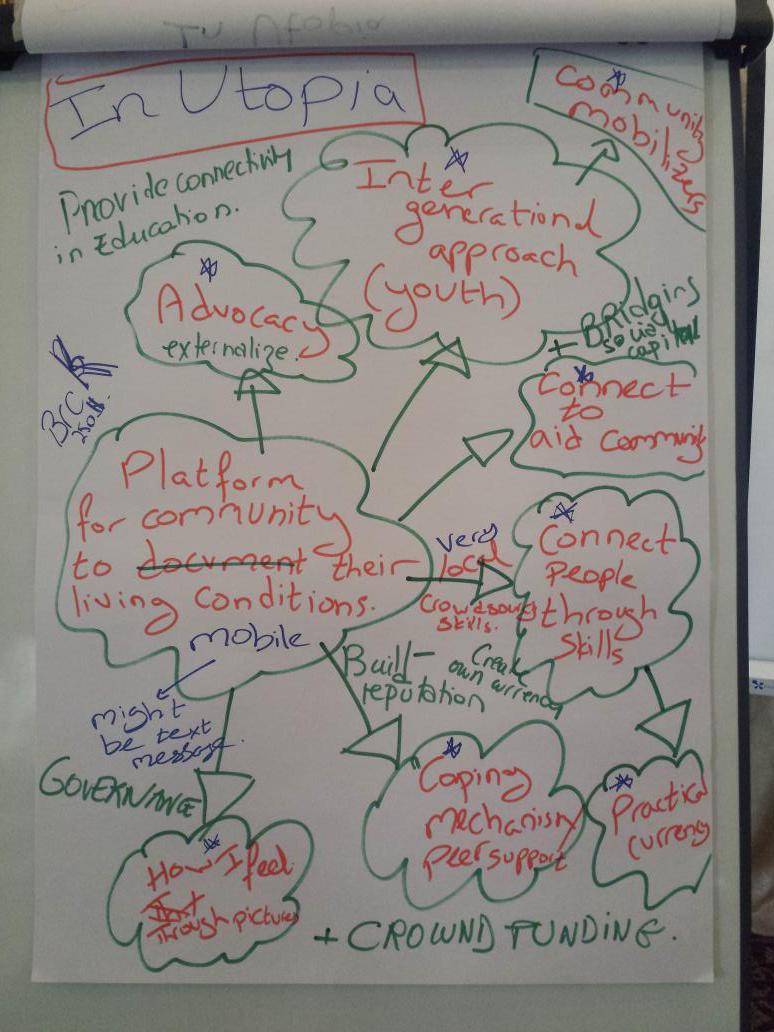 In Utopia
Community
mobilizers
Provide connectivity
in Education.
Inter
generational
approach
(youth)
Advocacy
externalize.
+ BRidging
social
capital
Connect
to
aid community
BrC
250$.
Platform
for community
to document their
living conditions.
mobile
might
be text
message.
very
local
Crowdsourc
skills.
Connect
People
through
skills
Build -
reputation
Create
own currency
GOVERNANCE
How I feel
Through pictures
Coping
mechanism
peer support
Practical
currency
+ CROWND FUNDING.